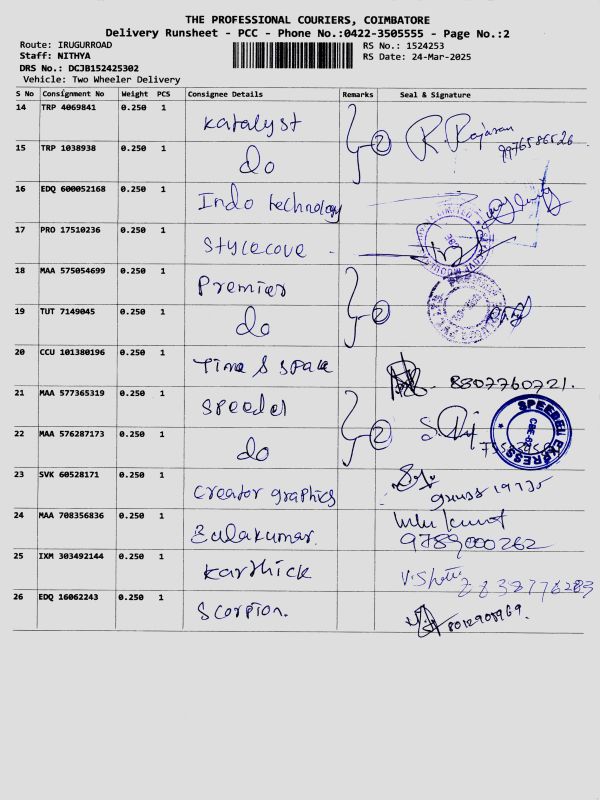 THE PROFESSIONAL COURIERS, COIMBATORE
Delivery Runsheet - PCC - Phone No.:0422-3505555 - Page No.:2
Route: IRUGURROAD
RS No.: 1524253
Staff: NITHYA
RS Date: 24-Mar-2025
DRS No.: DCJB152425302
Vehicle: Two Wheeler Delivery
S No Consignment No Weight PCS Consignee Details Remarks Seal & Signature
14 TRP 4069841 0.250 1 Katalyst 2 R. Rajasan 9976586526
15 TRP 1038938 0.250 1 do
16 EDQ 600052168 0.250 1 Indo technology
17 PRO 17510236 0.250 1 Stylecove
18 MAA 575054699 0.250 1 Premier 2
19 TUT 7149045 0.250 1 do
20 CCU 101380196 0.250 1 Time & space 8807760721.
21 MAA 577365319 0.250 1 Speedex 2 SPEEDEX EXPRESS
22 MAA 576287173 0.250 1 do
23 SVK 60528171 0.250 1 Creator graphics
24 MAA 708356836 0.250 1 9789000262
25 IXM 303492144 0.250 1 Karthick
26 EDQ 16062243 0.250 1 Scorpion.